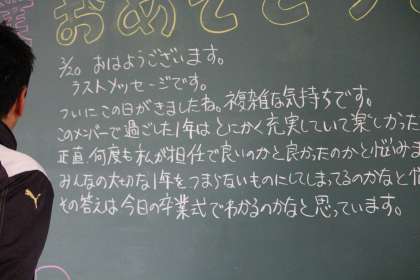 おめでとう
3/20 おはようございます。
ラストメッセージです。
ついにこの日がきましたね。複雑な気持ちです。
このメンバーで過ごした1年はとにかく充実していて楽しかった
正直、何度も私が担任で良いのかと良かったのかと悩みま
みんなの大切な1年をつまらないものにしてしまってるのかなと悩
その答えは今日の卒業式でわかるのかなと思っています。